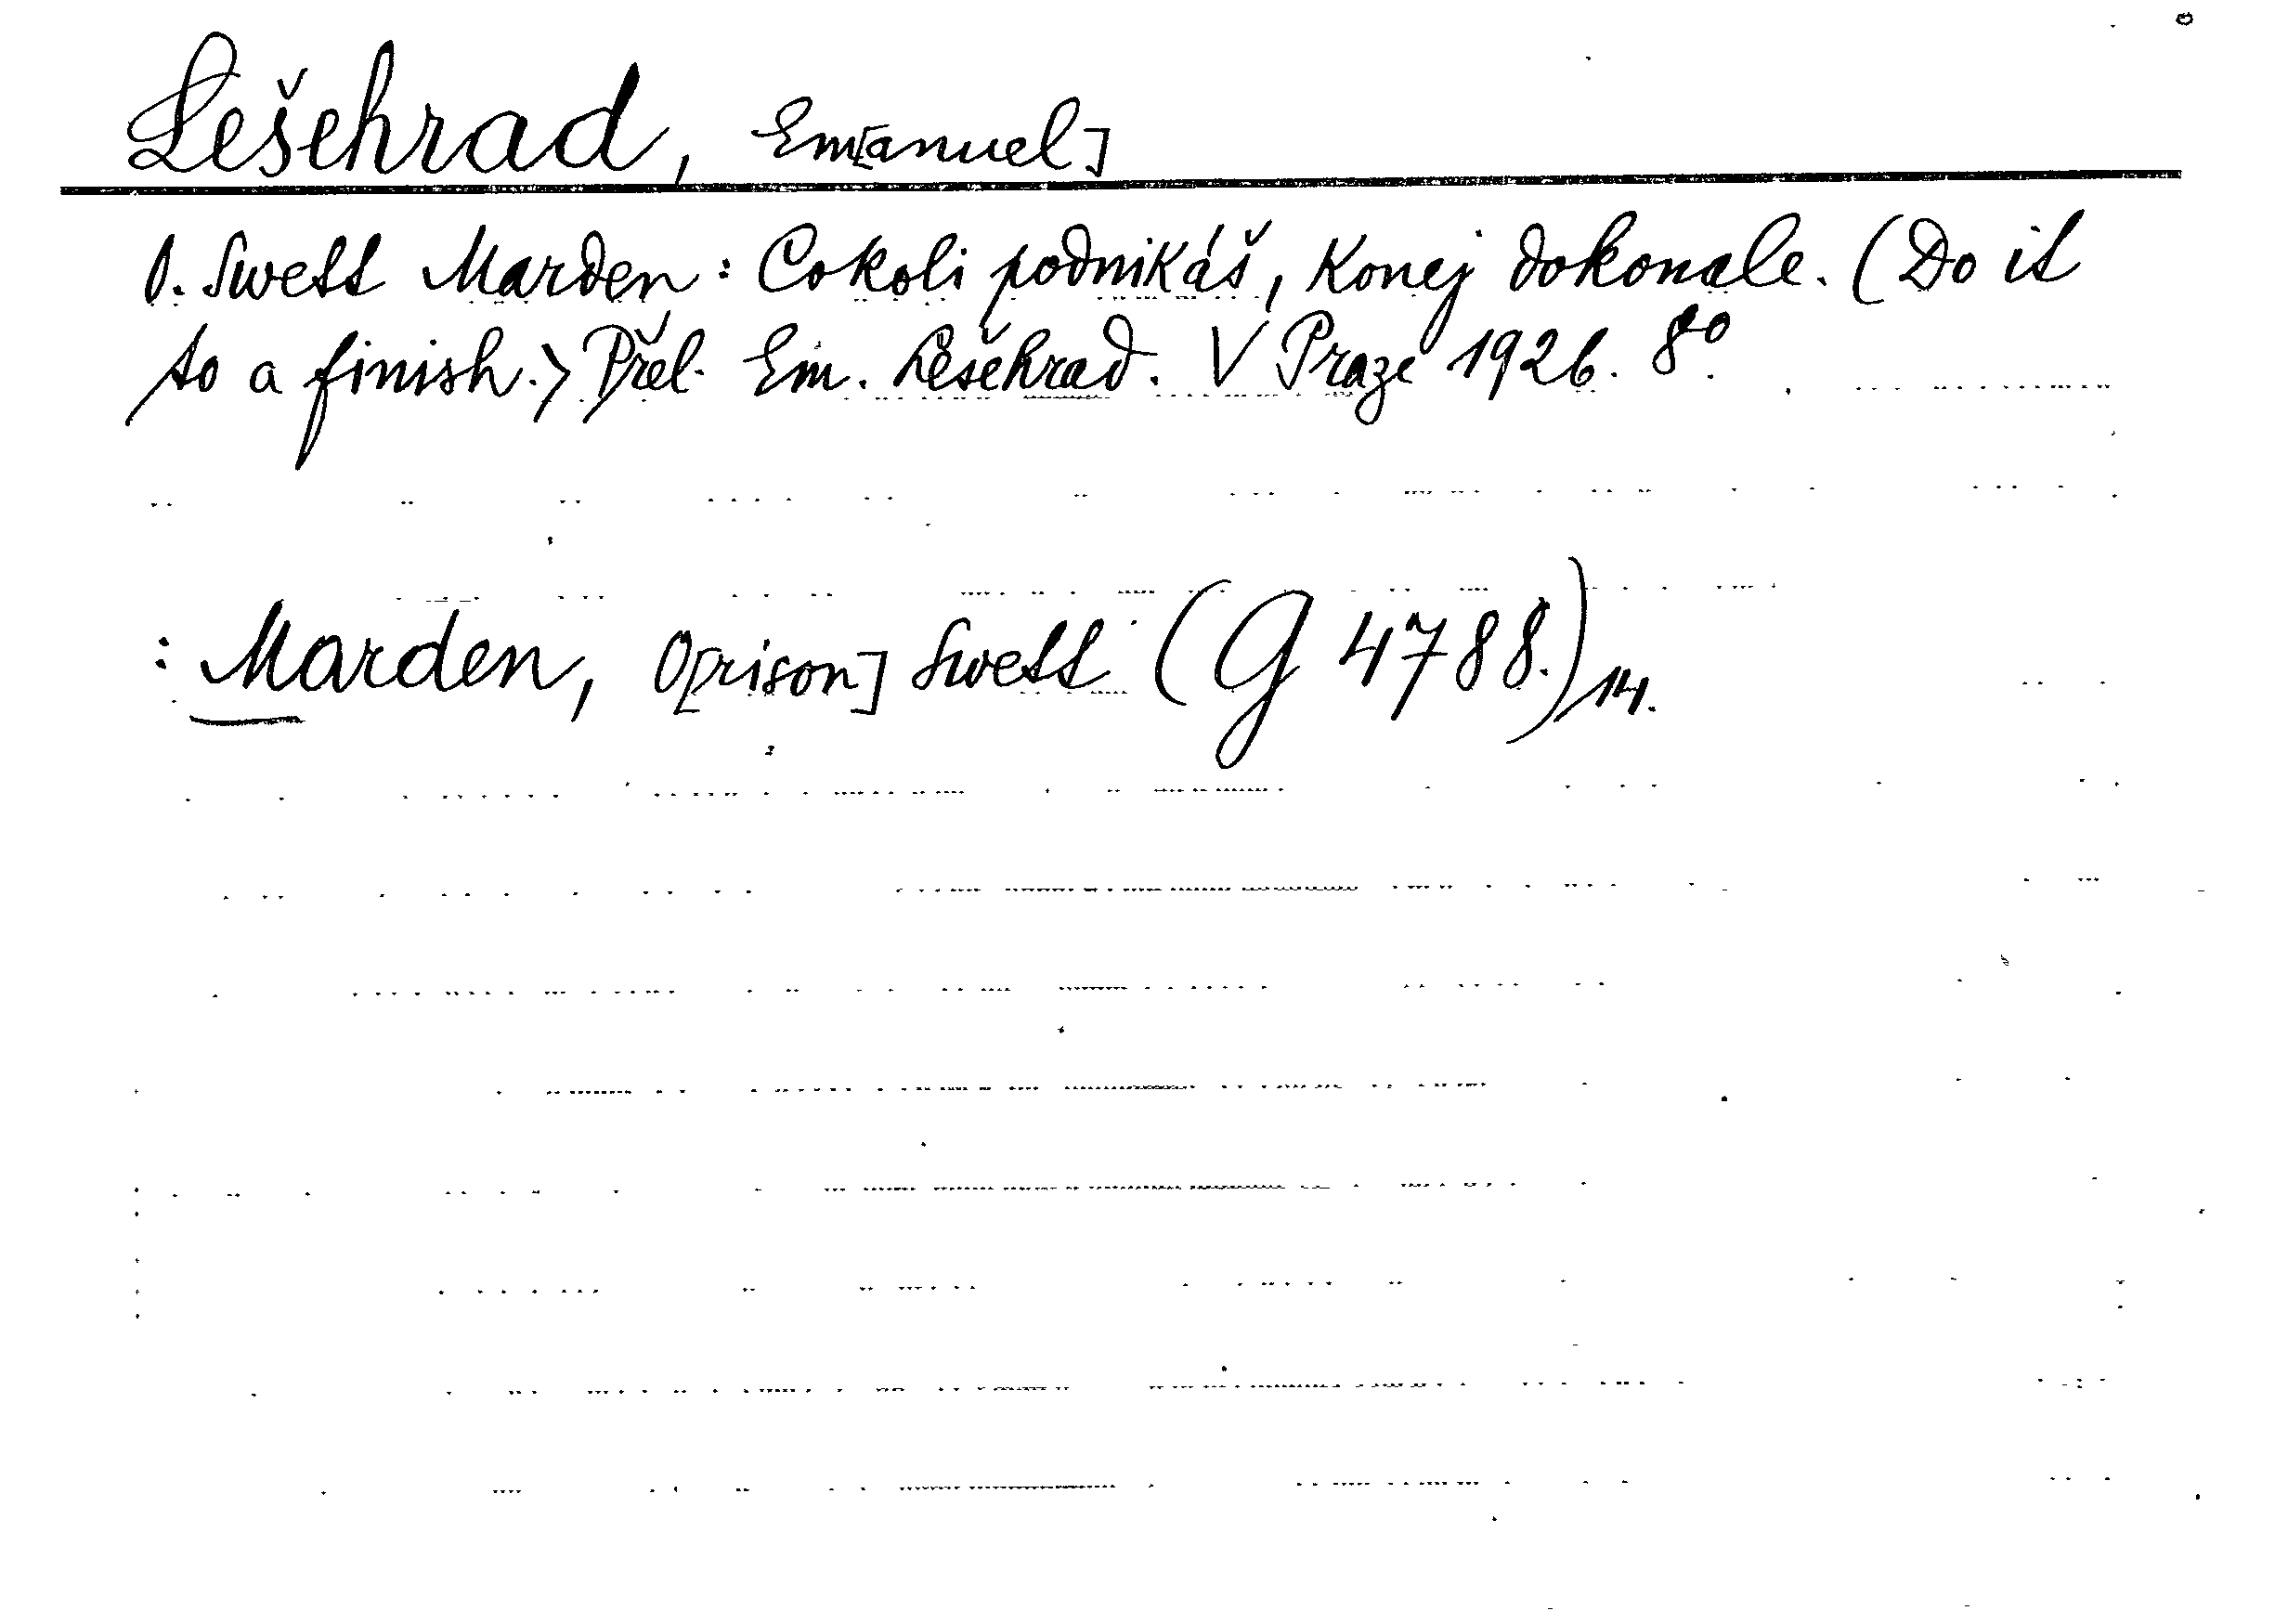 Lešehrad, Em[anuel]
O. Swett Marden: Cokoli podnikáš, konej dokonale. (Do it
to a finish.) Přel. Em. Lešehrad. V Praze 1926. 8°.
: Marden, O[rison] Swett (G 4788.)/14.